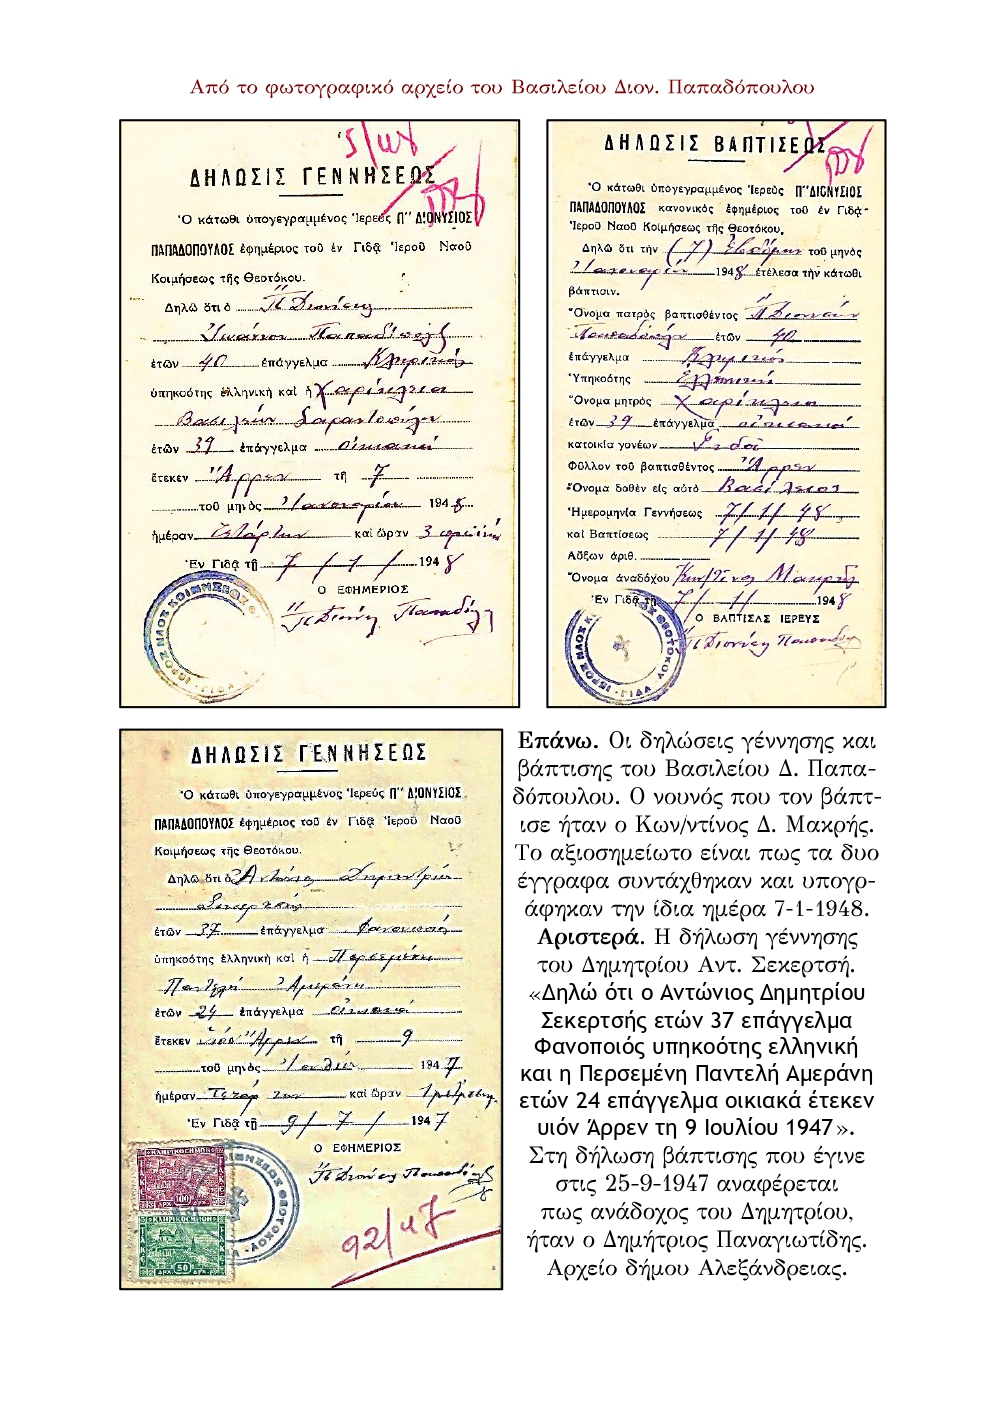 Από το φωτογραφικό αρχείο του Βασιλείου Διον. Παπαδόπουλου
5/48
ΔΗΛΩΣΙΣ ΓΕΝΝΗΣΕΩΣ
Ὁ κάτωθι ὑπογεγραμμένος Ἱερεὺς Π" ΔΙΟΝΥΣΙΟΣ
ΠΑΠΑΔΟΠΟΥΛΟΣ ἐφημέριος τοῦ ἐν Γιδᾷ Ἱεροῦ Ναοῦ
Κοιμήσεως τῆς Θεοτόκου.
Δηλῶ ὅτι ὁ Π" Διονύσιος
Ἰωάννου Παπαδόπουλος
ἐτῶν 40 ἐπάγγελμα Κληρικός
ὑπηκοότης ἑλληνικὴ καὶ ἡ Χαρίκλεια
Βασιλείου Σαραντοπούλου
ἐτῶν 39 ἐπάγγελμα οἰκιακά
ἔτεκεν Ἄρρεν τῇ 7
τοῦ μηνὸς Ἰανουαρίου 1948
ἡμέραν Τετάρτην καὶ ὥραν 3 πρωϊνήν
Ἐν Γιδᾷ τῇ 7/1/1948
Ο ΕΦΗΜΕΡΙΟΣ
Π" Διονύσ. Παπαδόπ
ΙΕΡΟΣ ΝΑΟΣ ΚΟΙΜΗΣΕΩΣ Θ ΓΙΔΑ
ΔΗΛΩΣΙΣ ΒΑΠΤΙΣΕΩΣ
Ὁ κάτωθι ὑπογεγραμμένος Ἱερεὺς Π" ΔΙΟΝΥΣΙΟΣ
ΠΑΠΑΔΟΠΟΥΛΟΣ κανονικὸς ἐφημέριος τοῦ ἐν Γιδᾷ
Ἱεροῦ Ναοῦ Κοιμήσεως τῆς Θεοτόκου.
Δηλῶ ὅτι τὴν (7) Ἑβδόμην τοῦ μηνὸς
Ἰανουαρίου 1948 ἐτέλεσα τὴν κάτωθι
βάπτισιν.
Ὄνομα πατρὸς βαπτισθέντος Π" Διονύσιος
Παπαδόπουλος ἐτῶν 40
ἐπάγγελμα Κληρικός
Ὑπηκοότης Ἑλληνική
Ὄνομα μητρὸς Χαρίκλεια
ἐτῶν 39 ἐπάγγελμα οἰκιακά
κατοικία γονέων Γιδᾶ
Φῦλλον τοῦ βαπτισθέντος Ἄρρεν
Ὄνομα δοθὲν εἰς αὐτὸ Βασίλειος
Ἡμερομηνία Γεννήσεως 7/1/48
καὶ Βαπτίσεως 7/1/48
Αὔξων ἀριθ.
Ὄνομα ἀναδόχου Κων/τῖνος Μακρῆς
Ἐν Γιδᾷ τῇ 7/1/1948
Ο ΒΑΠΤΙΣΑΣ ΙΕΡΕΥΣ
Π" Διονύσ. Παπαδόπ
ΙΕΡΟΣ ΝΑΟΣ Κ ΕΩΣ ΘΕΟΤΟΚΟΥ ΓΙΔΑ
ΔΗΛΩΣΙΣ ΓΕΝΝΗΣΕΩΣ
Ὁ κάτωθι ὑπογεγραμμένος Ἱερεὺς Π" ΔΙΟΝΥΣΙΟΣ
ΠΑΠΑΔΟΠΟΥΛΟΣ ἐφημέριος τοῦ ἐν Γιδᾷ Ἱεροῦ Ναοῦ
Κοιμήσεως τῆς Θεοτόκου.
Δηλῶ ὅτι ὁ Ἀντώνιος Δημητρίου
Σεκερτσής
ἐτῶν 37 ἐπάγγελμα Φανοποιός
ὑπηκοότης ἑλληνικὴ καὶ ἡ Περσεμένη
Παντελή Ἀμεράνη
ἐτῶν 24 ἐπάγγελμα οἰκιακά
ἔτεκεν υἱόν Ἄρρεν τῇ 9
τοῦ μηνὸς Ἰουλίου 1947
ἡμέραν Τετάρτην καὶ ὥραν
Ἐν Γιδᾷ τῇ 9/7/1947
Ο ΕΦΗΜΕΡΙΟΣ
Π" Διονύσ. Παπαδόπ
92/47
100
50
Επάνω. Οι δηλώσεις γέννησης και
βάπτισης του Βασιλείου Δ. Παπα-
δόπουλου. Ο νουνός που τον βάπτ-
ισε ήταν ο Κων/ντίνος Δ. Μακρής.
Το αξιοσημείωτο είναι πως τα δυο
έγγραφα συντάχθηκαν και υπογρ-
άφηκαν την ίδια ημέρα 7-1-1948.
Αριστερά. Η δήλωση γέννησης
του Δημητρίου Αντ. Σεκερτσή.
«Δηλώ ότι ο Αντώνιος Δημητρίου
Σεκερτσής ετών 37 επάγγελμα
Φανοποιός υπηκοότης ελληνική
και η Περσεμένη Παντελή Αμεράνη
ετών 24 επάγγελμα οικιακά έτεκεν
υιόν Άρρεν τη 9 Ιουλίου 1947».
Στη δήλωση βάπτισης που έγινε
στις 25-9-1947 αναφέρεται
πως ανάδοχος του Δημητρίου,
ήταν ο Δημήτριος Παναγιωτίδης.
Αρχείο δήμου Αλεξάνδρειας.